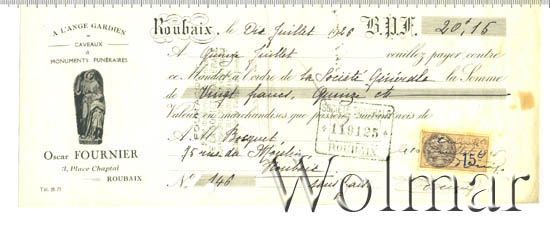 A L'ANGE GARDIEN
CAVEAUX
&
MONUMENTS FUNÉRAIRES
Oscar FOURNIER
3, Place Chaptal
ROUBAIX
Roubaix, le Dix Juillet 1920 B.P.F. 20f,15
A Quinze Juillet veuillez payer contre
ce Mandat à l'ordre de la Société Générale la Somme
de Vingt francs, Quinze cts
Valeur en marchandises que passerez suivant avis de
A M. Bosquet
75 rue du Moulin
Roubaix
No 146 sans frais
119125
ROUBAIX
15c
Wolmar